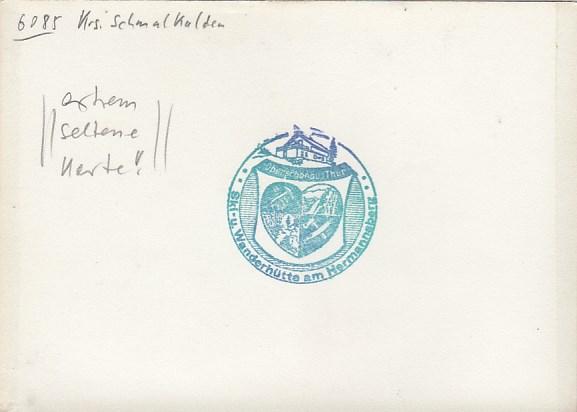 6085 Krs. Schmalkalden
extrem
seltene
Karte!
Oberschönau/Thür.
Ski- u. Wanderhütte am Hermannsberg